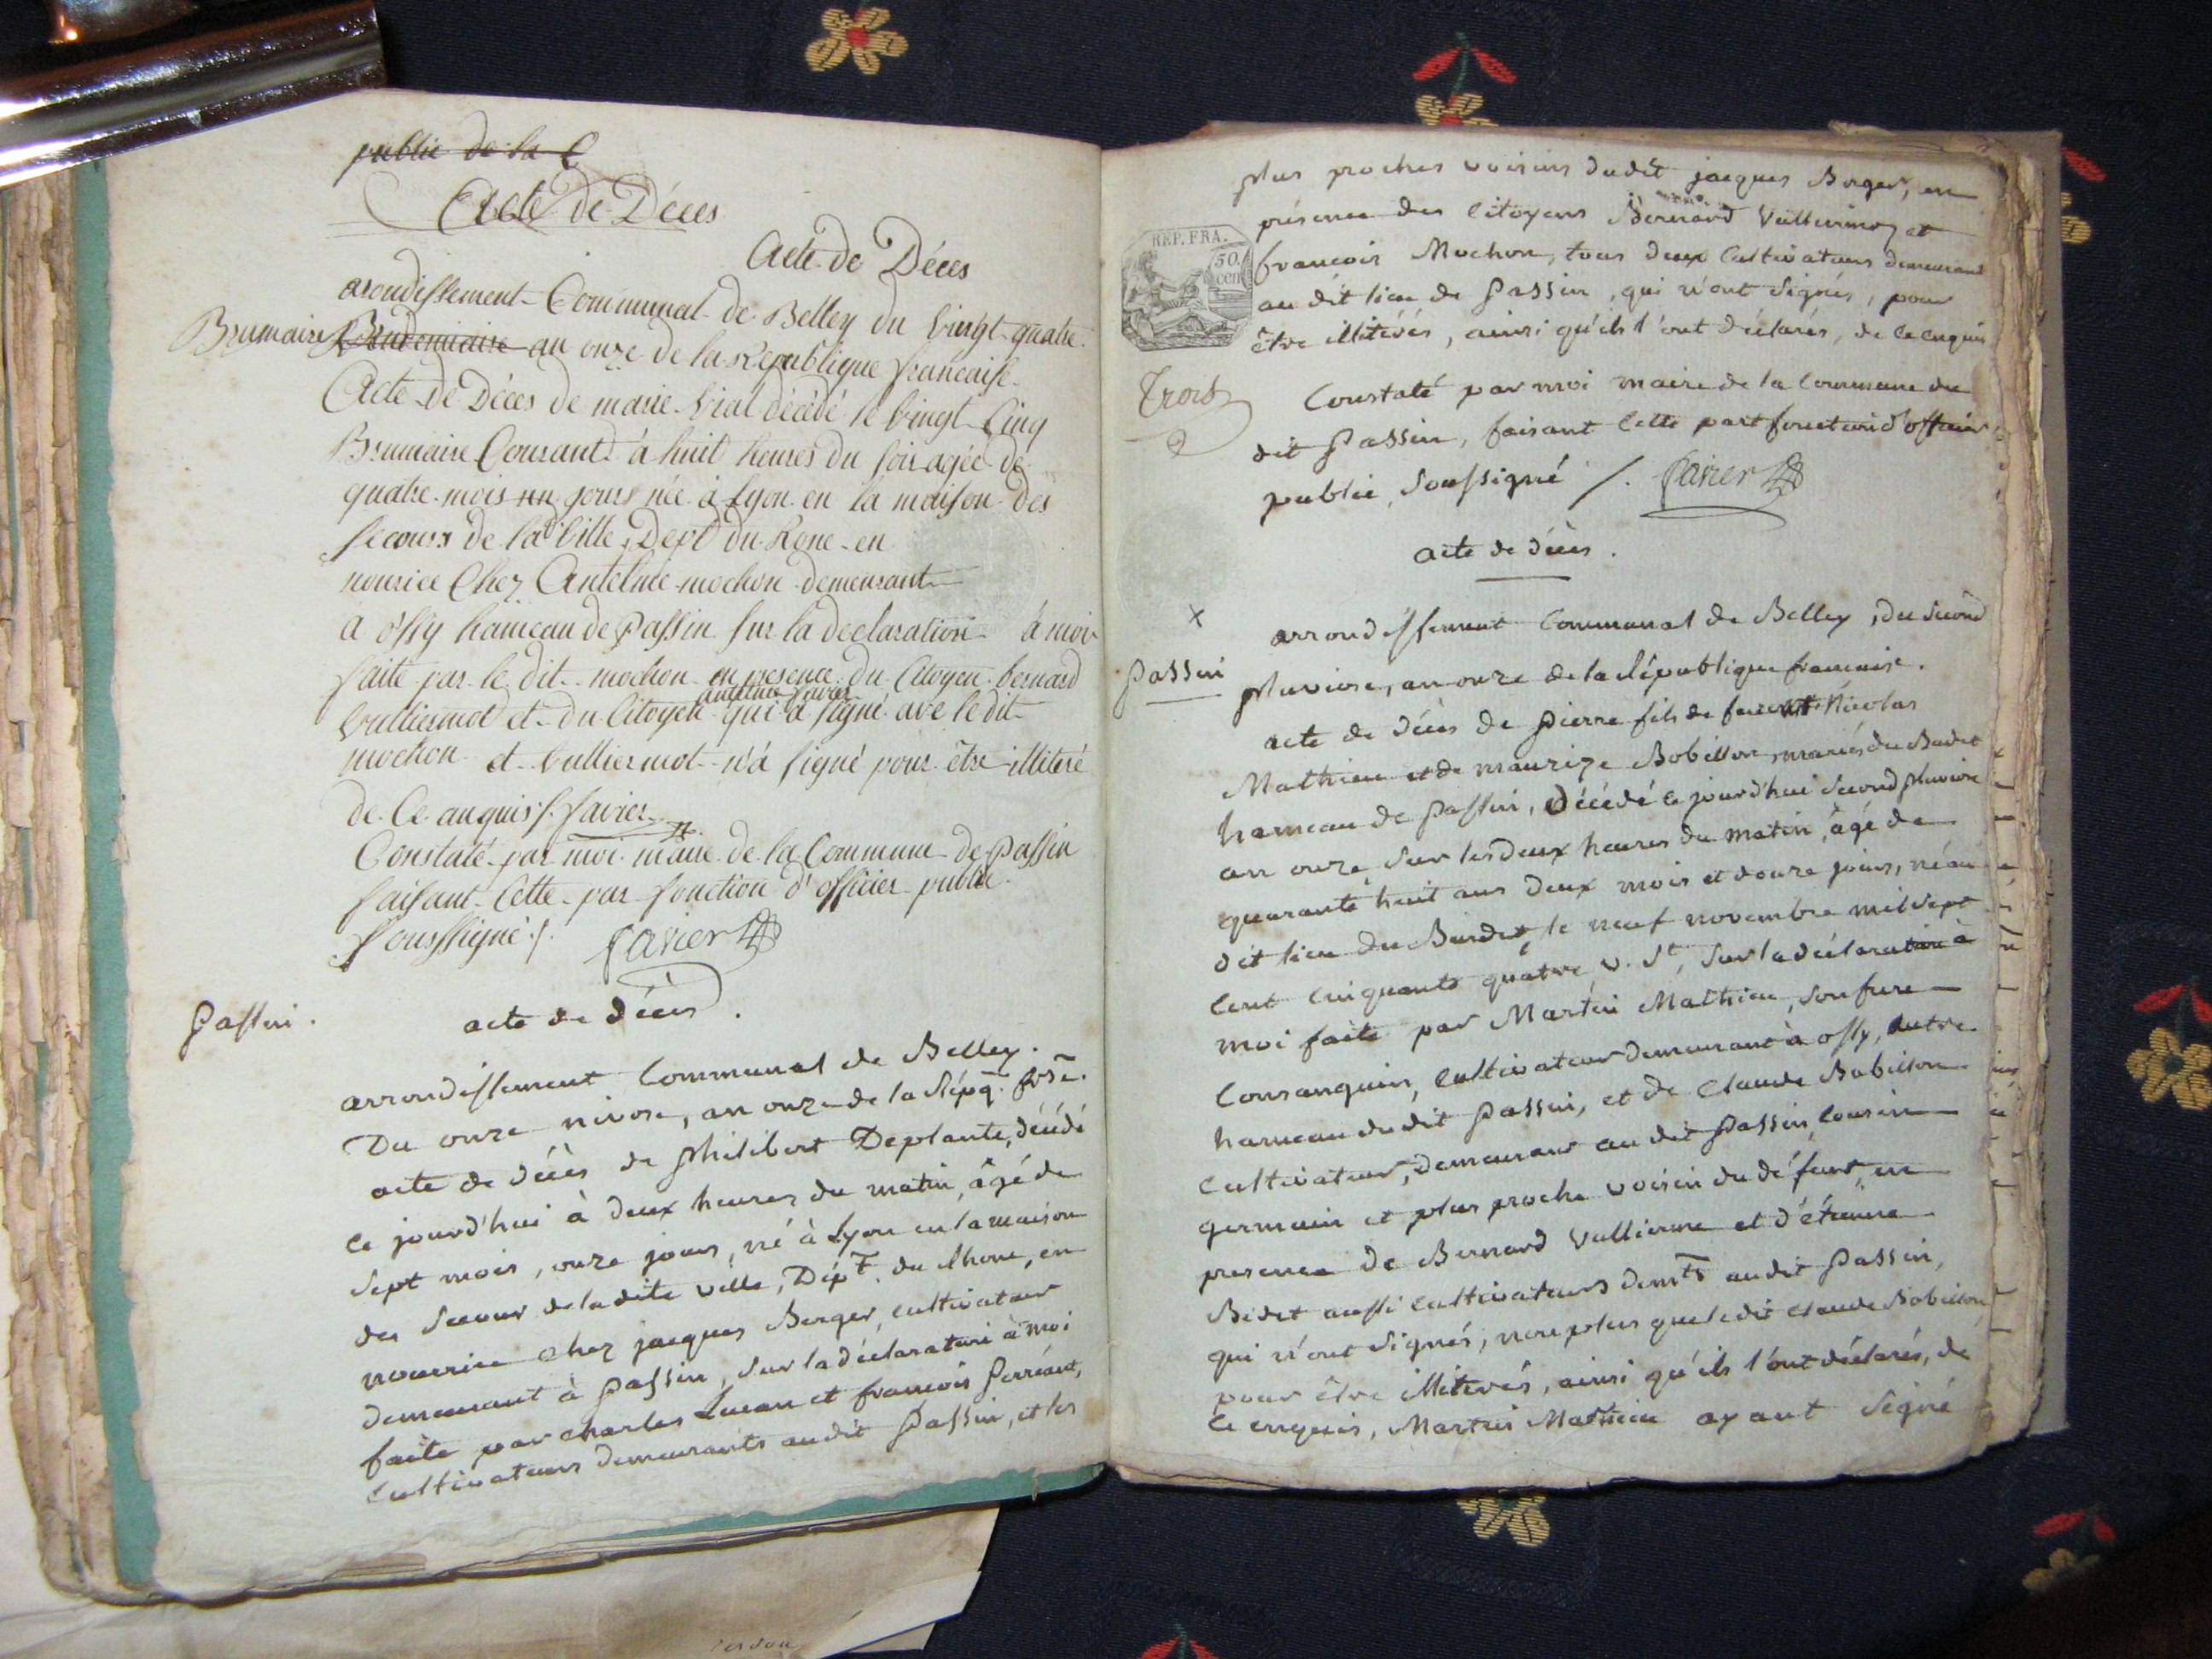 public de la C
Acte de Déces
Acte de Déces
arondissement Communal de Belley du vinght quatre
Brumaire Vendemiaire an onze de la Republique francaise
Acte de Déces de marie Vial décédé le vingt Cinq
Brumaire Courant à huit heures du soir agée de
quatre mois un jours née à Lyon en la maison des
secours de la Ville, Dept du Rone en
nourice Chez Antelme mochon demeurant
a ossy hameau de Passin sur la declaration à moi
faite par le dit mochon en presence du Citoyen bernard
antelme favier
vulliermot et du Citoyen qui a signé ave le dit
mochon et vulliermot n'à signé pour être illiteré
de Ce anquis /. favier
Constaté par moi maire de la Commune de Passin
faisant Cette par fonction d'officier public
soussigné /. favier
Passin.
acte de décès.
arrondissement Communal de Belley.
Du onze nivose, an onze de la Répq. frse.
acte de décès de philibert Deplante, décédé
ce jourd'hui à deux heures du matin, âgé de
sept mois, onze jours, né à Lyon en la maison
des Secour de la dite ville, Dépt. du Rhone, en
nourrice chez jacques Berger, cultivateur
demeurant à Passin, sur la déclaration à moi
faite par charles Lucan et francois Perréant,
cultivateurs demeurants audit Passin, et les
plus proches voisins dudit jacques Berger, en
présence des Citoyens Bernard Vullermoz et
REP. FRA.
50 cen
francois Mochon, tous deux Cultivateurs demeurant
au dit lieu de Passin, qui n'ont signés, pour
être illiterés, ainsi qu'ils l'ont déclarés, de ce enquis
Trois
Constaté par moi maire de la Commune du
dit Passin, faisant Cette part fonction d'officier
public, soussigné /. favier
acte de décès.
x
arrondissement Communal de Belley, du second
Passin
pluviose, an onze de la République francaise.
acte de décès de pierre fils de feu Nicolas
Mathieu et de maurize Bobillon mariés du Burdet
hameau de Passin, décédé ce jourd'hui second pluviose
an onze sur les deux heures du matin, âgé de
quarante huit ans deux mois et douze jours, né au
dit lieu du Burdet, le neuf novembre mil sept
Cent Cinquante quatre, v. st, sur la déclaration à
moi faite par Martin Mathieu, son frere
Consanguin, Cultivateur demeurant à ossy, autre
hameau dudit Passin, et de Claude Bobillon
Cultivateur, demeurant au dit Passin, cousin
germain et plus proche voisin du défunt, en
presence de Bernard Vullierme et d'étienne
Bidet aussi Cultivateurs demts audit Passin,
qui n'ont signés, non plus que le dit Claude Bobillon
pour être illiterés, ainsi qu'ils l'ont déclarés, de
ce enquis, Martin Mathieu ayant signé